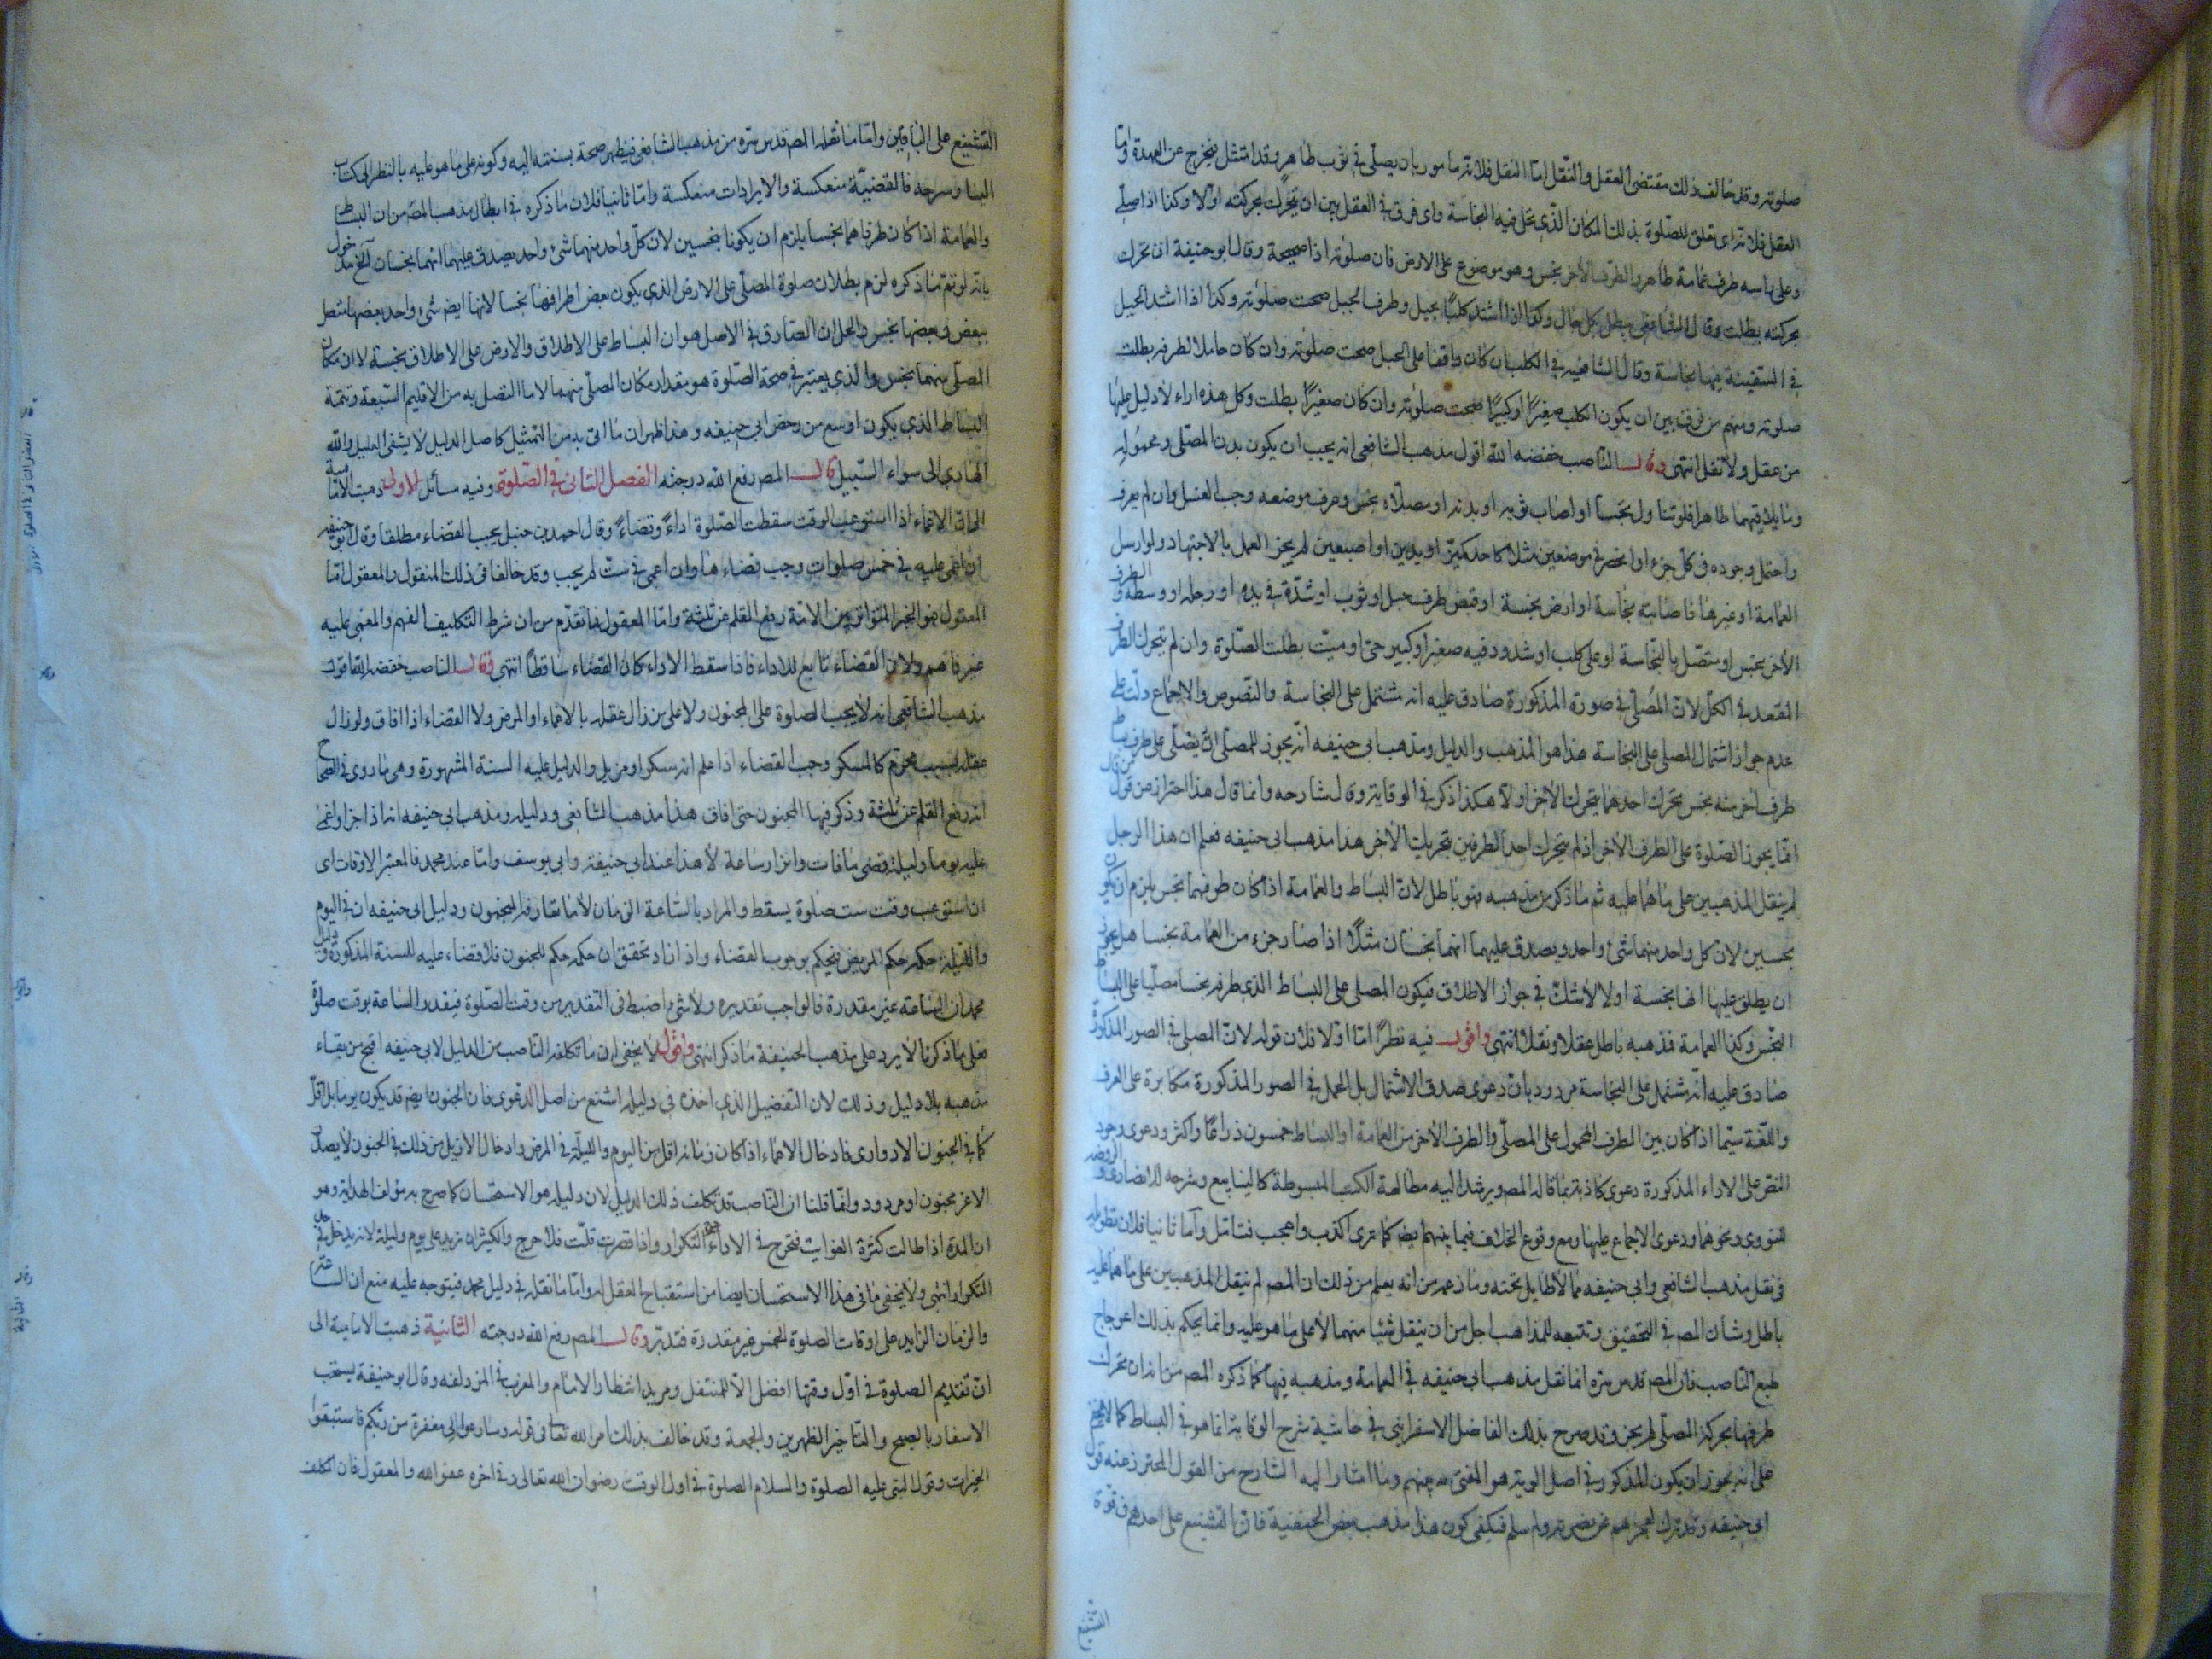 صلوته وقد خالف ذلك مقتضى العقل والنقل امّا النقل فلانّه مامور بان يصلّي في ثوب طاهر وقد امتثل فيخرج عن العهدة وامّا
العقل فلانّه اى تعلق للصّلوة بذلك المكان الّذي تحل فيه النجاسة واى فرق في العقل بين ان يتحرّك بحركته اولا وكذا اذا صلّى
وعلى راسه طرف عمامة طاهر والطرف الآخر نجس وهو موضوع على الارض فان صلوته اذا صحيحة وقال ابوحنيفة ان تحرك
بحركته بطلت وقال الشافعي يبطل بكل حال وكذا اذا شد كلبًا بحبل وطرف الحبل صحت صلوته وكذا اذا شد الحبل
في السفينة فيها نجاسة وقال الشافعي في الكلب ان كان واقفا على الحبل صحت صلوته وان كان حاملا لطرفه بطلت
صلوته ومنهم من فرق بين ان يكون الكلب صغيرًا او كبيرًا صحت صلوته وان كان صغيرًا بطلت وكل هذه اراء لا دليل عليها
من عقل ولا نقل انتهى وقال الناصب خفضه الله اقول مذهب الشافعي انه يجب ان يكون بدن المصلّى ومحموله
وما يلاقيهما طاهرا فلو تنا ول نجسا او اصاب ثوبه او بدنه او مصلّاه نجس وعرف موضعه وجب الغسل وان لم يعرف
واحتمل وجوده في كلّ جزء او انحصر في موضعين مثلا كاحد كميّن او يدين او اصبعين لم يجز العمل بالاجتهاد ولو ارسل
العمامة او غيرها فاصابته نجاسة او ارض نجسة او قبض طرف حبل او ثوب او شدّه في يده او رجله او وسطه والطرف
الآخر نجس او متصّل بالنجاسة او على كلب او شدود فيه صغير او كبير حىّ او ميّت بطلت الصّلوة وان لم يتحرك الطرف
المقعد في الكلّ لانّ المُصلّي في صورة المذكورة صادق عليه انه مشتمل على النجاسة والنّصوص والاجماع دلّت على
عدم جواز اشتمال المصلي على النجاسة هذا هو المذهب والدليل ومذهب ابي حنيفه انّه يجوز للمصلّي ان يصلّي على طرف بساط
طرف آخر منه نجس يتحرّك احدهما بتحرك الآخر اولا هكذا ذكر في الوقاية وقال شارحه وانما قال هذا احتراز عن قول من قال
انّما يجوز الصلوة على الطرف الآخر اذا لم يتحرك احد الطرفين بتحريك الآخر هذا مذهب ابى حنيفه فعلم ان هذا الرجل
لم ينقل المذهبين على ما هما عليه ثم ما ذكر من مذهبه فهو باطل لانّ البساط والعمامة اذا كان طرفهما نجس يلزم ان يكون
نجسين لانّ كل واحد منهما شيئ واحد ويصدق عليهما انهما نجسان مثلًا اذا صار جزء من العمامة نجسا هل يجوز
ان يطلق عليها انها نجسة اولا لا شكّ في جواز الاطلاق فيكون المصلى على البساط الذي طرفه نجسا مصلّيا على البساط
النجس وكذا العمامة فمذهبه باطل عقلا ونقلًا انتهى واقول فيه نظرًا امّا اوّلا فلان قوله لانّ المصلى في الصور المذكورة
صادق عليه انّه مشتمل على النجاسة مردود بانّ دعوى صدق الاشتمال بل الحمل في الصور المذكورة مكابرة على العرف
واللّغة سيّما اذا كان بين الطرف المحمول على المصلّي والطرف الآخر من العمامة او البساط خمسون ذراعًا واكثر ودعوى وجود
النصّ على الاراء المذكورة دعوى كاذبة بما قاله المصـ ويرشد اليه مطالعة الكتب المبسوطة كالينابيع وشرحه للانصارى والروضه
للنووى ونحوهما ودعوى الاجماع عليها مع وقوع الخلاف فيما بينهم ايضـ كما ترى اكذب واعجب فتامّل وامّا ثانيا فلان تطويله
في نقل مذهب الشافعي وابي حنيفه ممّا لا طايل تحته وما زعم من انه يعلم من ذلك ان المصـ لم ينقل المذهبين على ما هما عليه
باطل وشان المصـ في التحقيق وتتبعه للمذاهب اجل من ان ينقل شيئا منهما الّا على ما هو عليه وانما يحكم بذلك اعوجاج
طبع الناصب فان المصـ قدس سره انما نقل مذهب ابي حنيفه في العمامة ومذهبه فيها كما ذكره المصـ من انه ان تحرك
طرفها بحركة المصلّى لم يجز وقد صرح بذلك الفاضل الاسفرايني في حاشية شرح الوقاية انما هو في البساط كما لا يخفى
على انه يجوز ان يكون المذكور في اصل الوقاية هو المفتى به بينهم وما اشار اليه الشارح من القول المحترز عنه قول
ابي حنيفه وقد ترك لعجزهم عن نصرته ولو سلم فيكفى كون هذا مذهب بعض الحنفية فانّ التشنيع على احدهم في قوّة
التشنيع
التشنيع على الباقين وامّا ما نقله المصـ قدس سره من مذهب الشافعي فيظهر صحة نسبته اليه وكونه على ما هو عليه بالنظر الى كتاب
الينا وشرحه فالقضيّة منعكسة والايرادات منعكسة وامّا ثانيا فلان ما ذكره في ابطال مذهب المصـ من ان البساط
والعمامة اذا كان طرفاهما نجسا يلزم ان يكونا نجسين لان كلّ واحد منهما شئ واحد يصدق عليهما انهما نجسان آلخ مدخول
بانه لو تمّ ما ذكره لزم بطلان صلوة المصلّى على الارض الذي يكون بعض اطرافها نجسا لانها ايضـ شئ واحد بعضها متصل
ببعض وبعضها نجس والحل ان الصادق في الاصل هو ان البساط على الاطلاق والارض على الاطلاق نجسة لا ان مكان
المصلّى منهما نجس والذي يعتبر في صحة الصّلوة هو مقدار مكان المصلّى منهما لا ما اتصل به من الاقليم السّبعة وتتمة
البساط الذي يكون اوسع من رخص ابي حنيفه وهذا ظهر ان ما اتى به من التمثيل كاصل الدليل لا يشفى العليل والله
الهادي الى سواء السّبيل قال المصـ رفع الله درجته الفصل الثانى في الصّلوة وفيه مسائل الاولى ذهبت الاماميّة
الى انّ الاغماء اذا استوعب الوقت سقطت الصّلوة اداءً وقضاءً وقال احمد بن حنبل يجب القضاء مطلقا وقال ابو حنيفه
ان اغمى عليه في خمس صلوات وجب قضاءها وان اغمى في ستّ لم يجب وقد خالفا في ذلك المنقول والمعقول امّا
المعقول فهو الخبر المتواتر بين الامّة رفع القلم عن ثلثة وامّا المعقول فما تقدّم من ان شرط التكليف الفهم والمغمى عليه
غير فاهم ولان القضاء تابع للاداء فاذا سقط الاداء كان القضاء ساقطًا انتهى وقال الناصب خفضه الله اقول
مذهب الشافعي انه لا يجب الصلوة على المجنون ولا على من زال عقله بالاغماء او المرض ولا القضاء اذا افاق ولو زال
عقله بسبب محرّم كالمسكر وجب القضاء اذا علم انه مسكر او مزيل والدليل عليه السنة المشهورة وهى ما روى في الصحاح
انه رفع القلم عن ثلثة وذكر فيها المجنون حتى افاق هذا مذهب الشافعي ودليله ومذهب ابي حنيفه انه اذا جن او اغمى
عليه يوما وليلة وقضى ما فات وان زاد ساعة لا هذا عند ابي حنيفة وابى يوسف وامّا عند محمد فالمعتبر الاوقات اى
ان استوعب وقت ست صلوة يسقط والمراد بالسّاعة الزمان لا ما تعارفه المنجمون ودليل ابي حنيفه ان في اليوم
والليلة حكمه حكم المريض فيحكم بوجوب القضاء واذا زاد تحقق ان حكمه حكم المجنون فلا قضاء عليه للسنة المذكورة ودليل
محمد ان الساعة غير مقدرة فالواجب تقديره ولا شئ اضبط في التقدير من وقت الصّلوة فيقدر الساعة بوقت صلوة
فعلى ما ذكرنا لا يرد على مذهب الحنيفة ما ذكر انتهى واقول لا يخفى ان ما تكلفه الناصب من الدليل لابي حنيفه اقبح من بقاء
مذهبه بلا دليل وذلك لان التفصيل الذي اخذه في دليله اشنع من اصل الدعوى فان الجنون ايضـ قد يكون يوما بل اقل
كما في الجنون الادوارى فادخال الاغماء اذا كان زمانه اقل من اليوم والليلة في المرض وادخال الازيل من ذلك في الجنون لا يصدر
الا عن مجنون او مردود وانّما قلنا ان النّاصب قد تكلف ذلك الدليل لان دليله هو الاستحسان كما صرح به مؤلف الهداية وهو
ان المدّة اذا طالت كثرة الفوايت فتحرج في الاداء للتكرار واذا قصرت قلّت فلا حرج والكثير ان يزيد على يوم وليلة لانه يدخل في حد
التكرار انتهى ولا يخفى ما فى هذا الاستحسان ايضا من استقباح العقل له وامّا ما نقله في دليل محمد فيتوجه عليه منع ان الساعة
والزمان الزايد على اوقات الصلوة الخمس غير مقدرة فتدبّر وقال المصـ رفع الله درجته الثانية ذهبت الامامية الى
انّ تقديم الصلوة في اوّل وقتها افضل الّا للمتنفل ومريد انتظار الامام والمغرب في المزدلفه وقال ابو حنيفة يستحب
الاسفار بالصبح والتاخير الظهرين والجمعة وقد خالف بذلك امر الله تعا في قوله وسارعوا الى مغفرة من ربّكم فاستبقوا
الخيرات وقول النبى عليه الصلوة والسلام الصلوة في اول الوقت رضوان الله تعالى وفي اخره عفو الله والمعقول فان المكلف